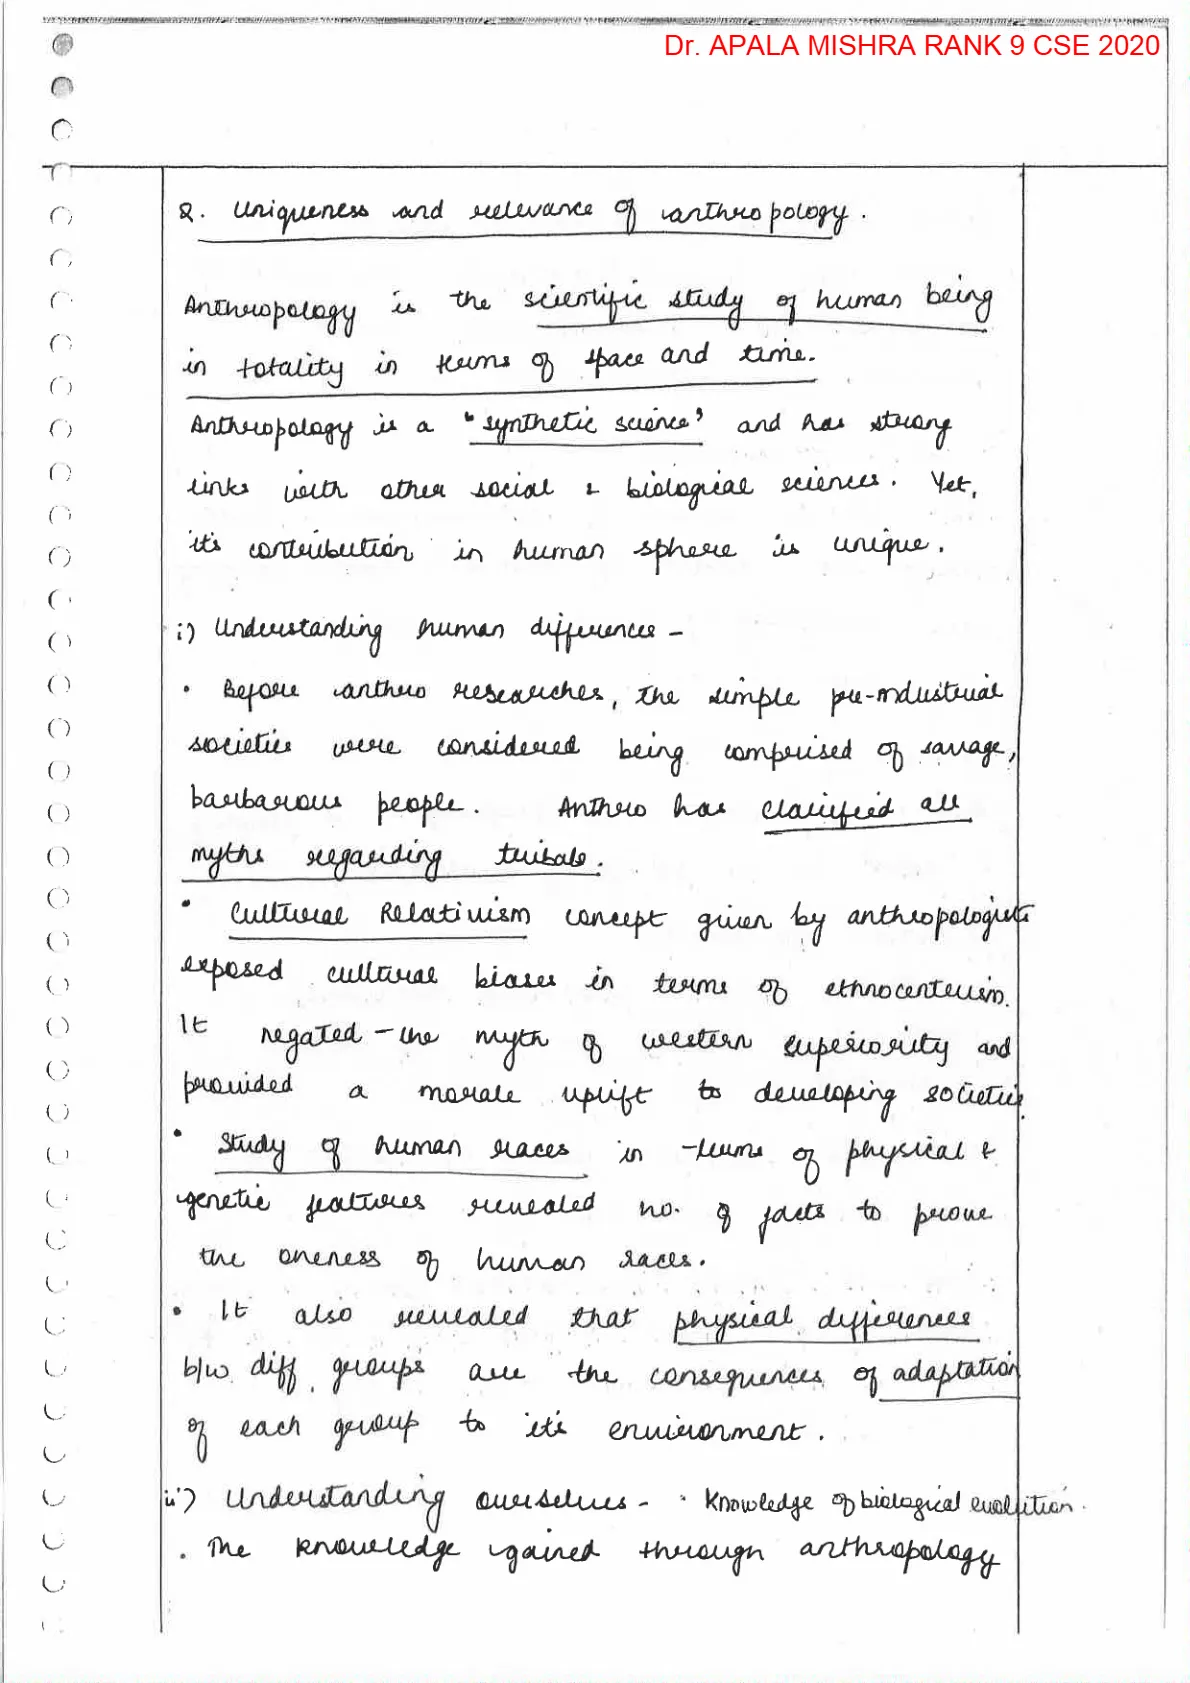 Dr. APALA MISHRA RANK 9 CSE 2020
Q. Uniqueness and relevance of anthropology.
Anthropology is the scientific study of human being
in totality in terms of space and time.
Anthropology is a "synthetic science" and has strong
links with other social & biological sciences. Yet,
it's contribution in human sphere is unique.
i) Understanding human differences -
• Before anthro researches, the simple pre-industrial
societies were considered being comprised of savage,
barbarous people. Anthro has clarified all
myths regarding tribals.
• Cultural Relativism concept given by anthropologists
exposed cultural biases in terms of ethnocenterism.
It negated the myth of western superiority and
provided a morale uplift to developing societies.
• Study of human races in terms of physical &
genetic features revealed no. of facts to prove
the oneness of human races.
• It also revealed that physical differences
b/w diff groups are the consequences of adaptation
of each group to it's environment.
ii) Understanding ourselves - • Knowledge of biological evolution.
• The knowledge gained through anthropology